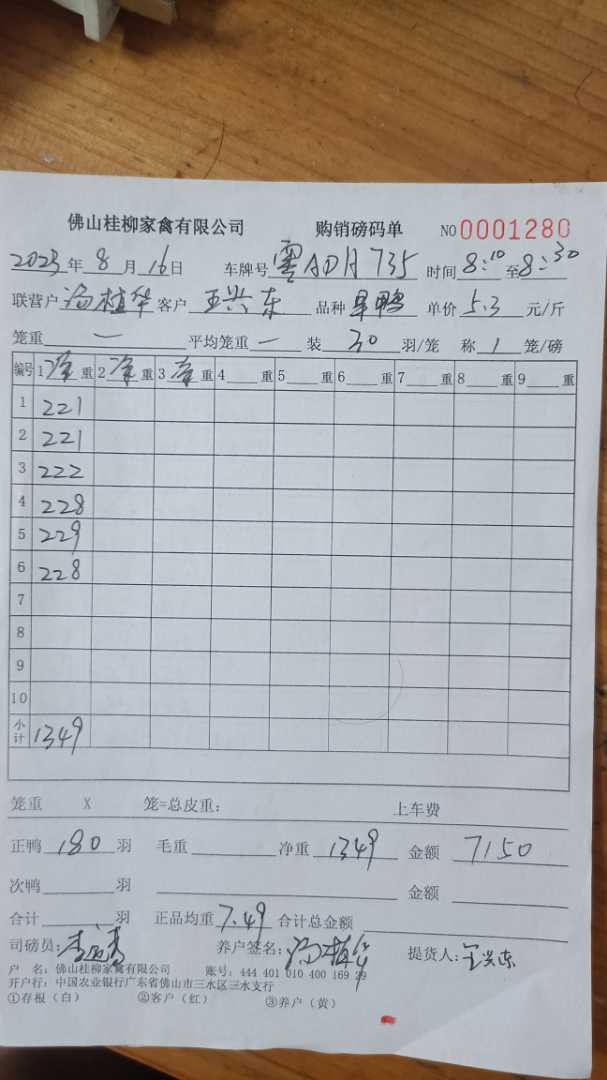 佛山桂柳家禽有限公司 购销磅码单 NO 0001280
2023年8月16日 车牌号粤ADA735 时间8:10至8:30
联营户汤植华客户王兴东 品种旱鸭 单价5.3元/斤
笼重一平均笼重一装30羽/笼 称1笼/磅
编号 1净重 2净重 3净重 4重 5重 6重 7重 8重 9重
1 221
2 221
3 222
4 228
5 229
6 228
7
8
9
10
小计 1349
笼重 X 笼=总皮重: 上车费
正鸭180羽 毛重 净重1349 金额7150
次鸭羽 金额
合计羽 正品均重7.49合计总金额
司磅员: 养户签名:汤植华 提货人:王兴东
户 名:佛山桂柳家禽有限公司 账号:444 401 010 400 169 29
开户行:中国农业银行广东省佛山市三水区三水支行
①存根(白) ②客户(红) ③养户(黄)